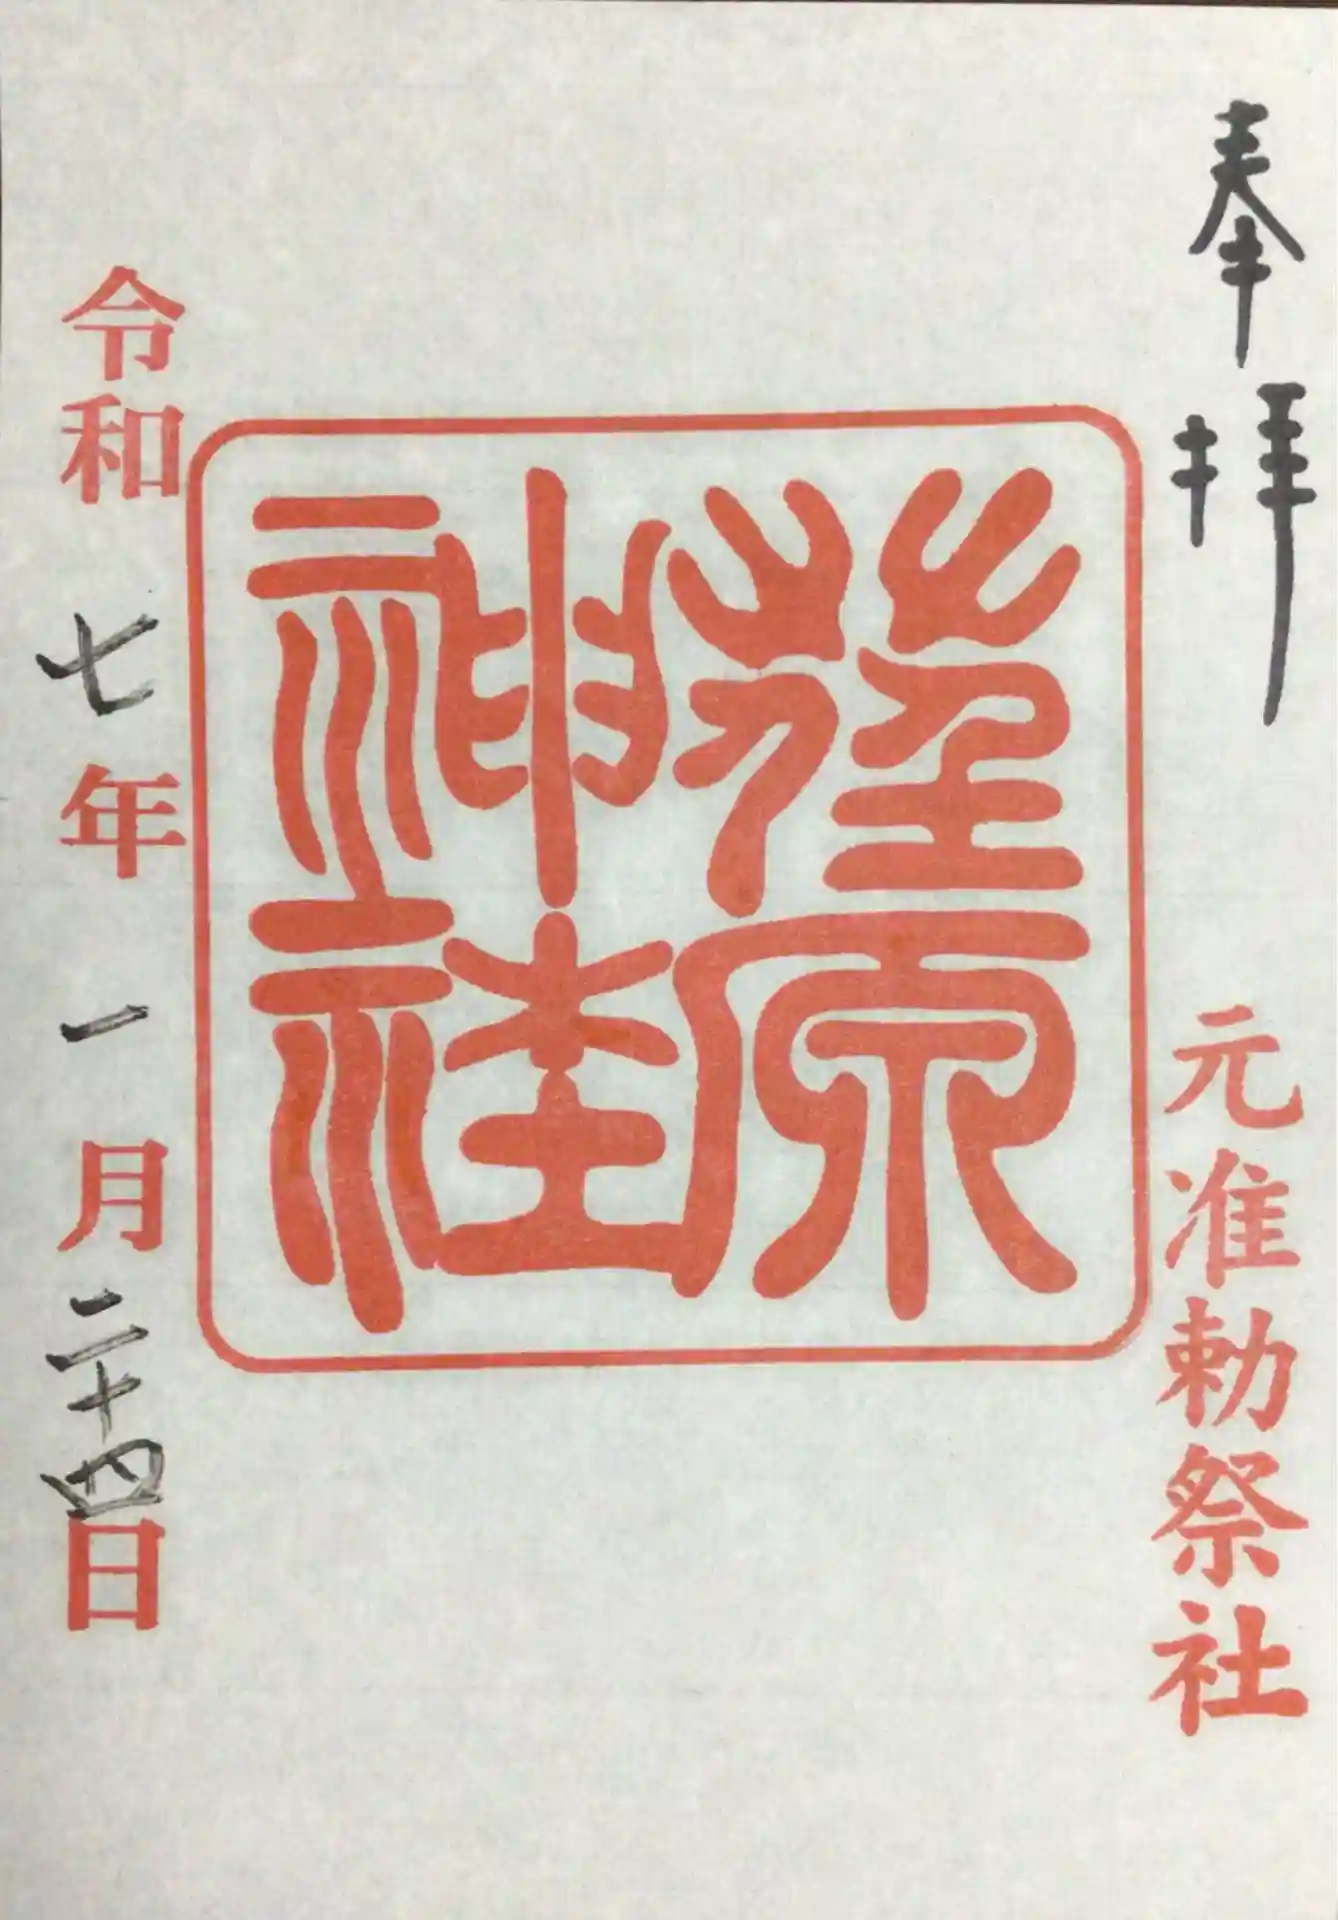 奉拝
元准勅祭社
蒲原神社
令和七年一月二十四日